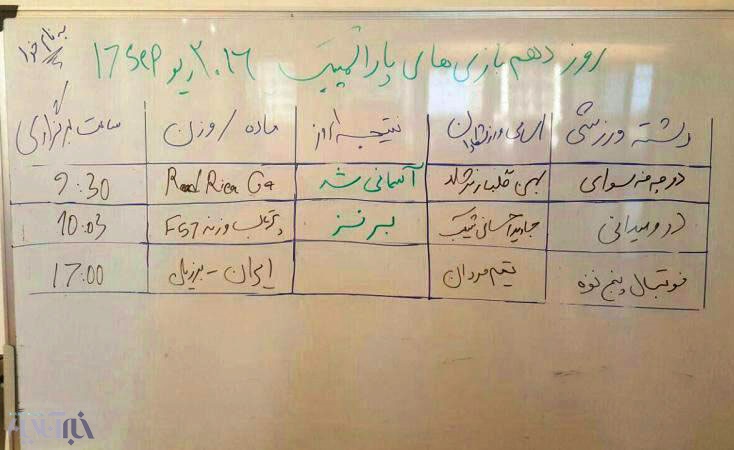 به نام خدا
روز دهم بازی های پارالمپیک ۲۰۱۶ ریو 17 Sep
رشته ورزشی اسامی ورزشکاران نتیجه/روز ماده/وزن ساعت برگزاری
دوچرخه سواری بهمن گلبارنژاد آسمانی شد Road Race C4 9:30
دو و میدانی جاوید احسانی شکیب برنز پرتاب وزنه F57 10:03
فوتبال پنج نفره تیم مردان ایران - برزیل 17:00
خبرآنلاین